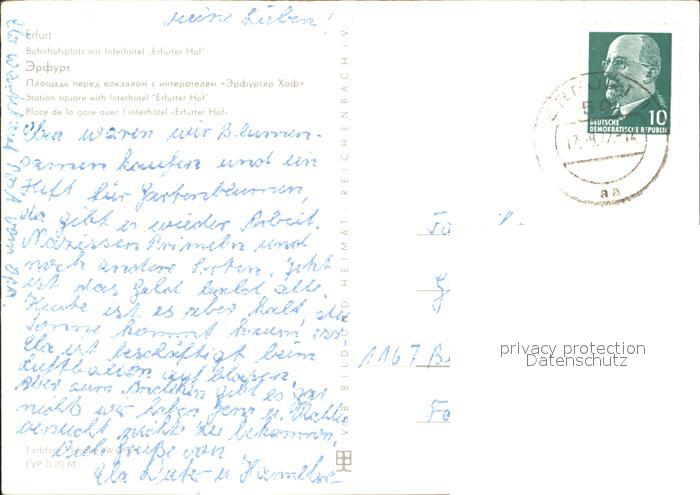 meine Lieben!
Erfurt
Bahnhofsplatz mit Interhotel „Erfurter Hof"
Эрфурт
Площадь перед вокзалом с интеротелем «Эрфуртер Хоф»
Station square with Interhotel "Erfurter Hof"
Place de la gare avec l'interhôtel «Erfurter Hof»
Eben waren wir Blumen-
samen kaufen und ein
Heft für Gartenblumen,
da gibt es wieder Arbeit.
Narzissen Primeln und
noch andere Sorten. Jetzt
ist das Geld bald alle.
Heute ist es aber kalt die
Sonne kommt kaum
ist beschäftigt beim
Luftballon aufblasen,
aber zum gibt es gar
nichts wir haben Jena u.
versucht nichts zu bekommen.
Viele Grüße von
EVP 0,20 M
VEB BILD UND HEIMAT REICHENBACH I V
DEUTSCHE
DEMOKRATISCHE REPUBLIK
10
ERFURT
aa
1167
privacy protection
Datenschutz